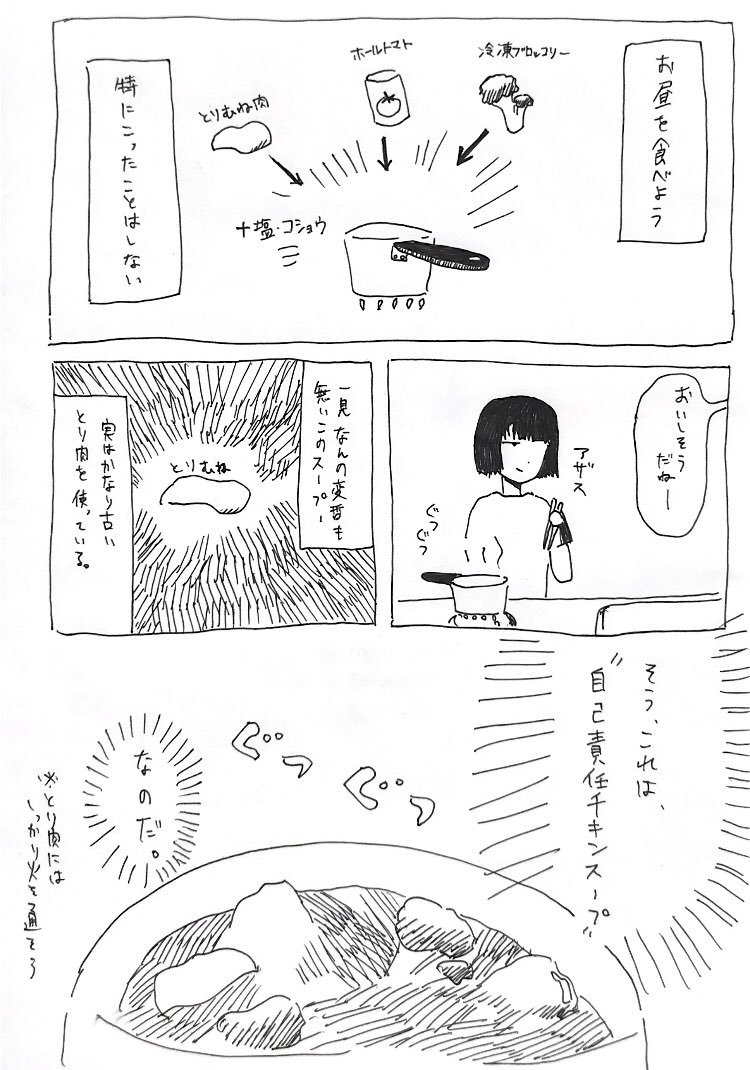 お昼を食べよう
冷凍ブロッコリー
ホールトマト
とりむね肉
+塩・コショウ
特にこったことはしない
おいしそう
だねー
アザス
ぐつ
ぐつ
一見なんの変哲も
無いこのスープ…
とりむね
実はかなり古い
とり肉を使っている。
そう、これは、
"自己責任チキンスープ"
ぐつ
ぐつ
なのだ。
※とり肉には
しっかり火を通そう